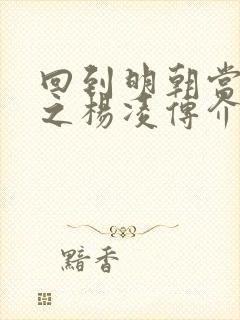 回到明朝當
之楊凌傳介
黯香